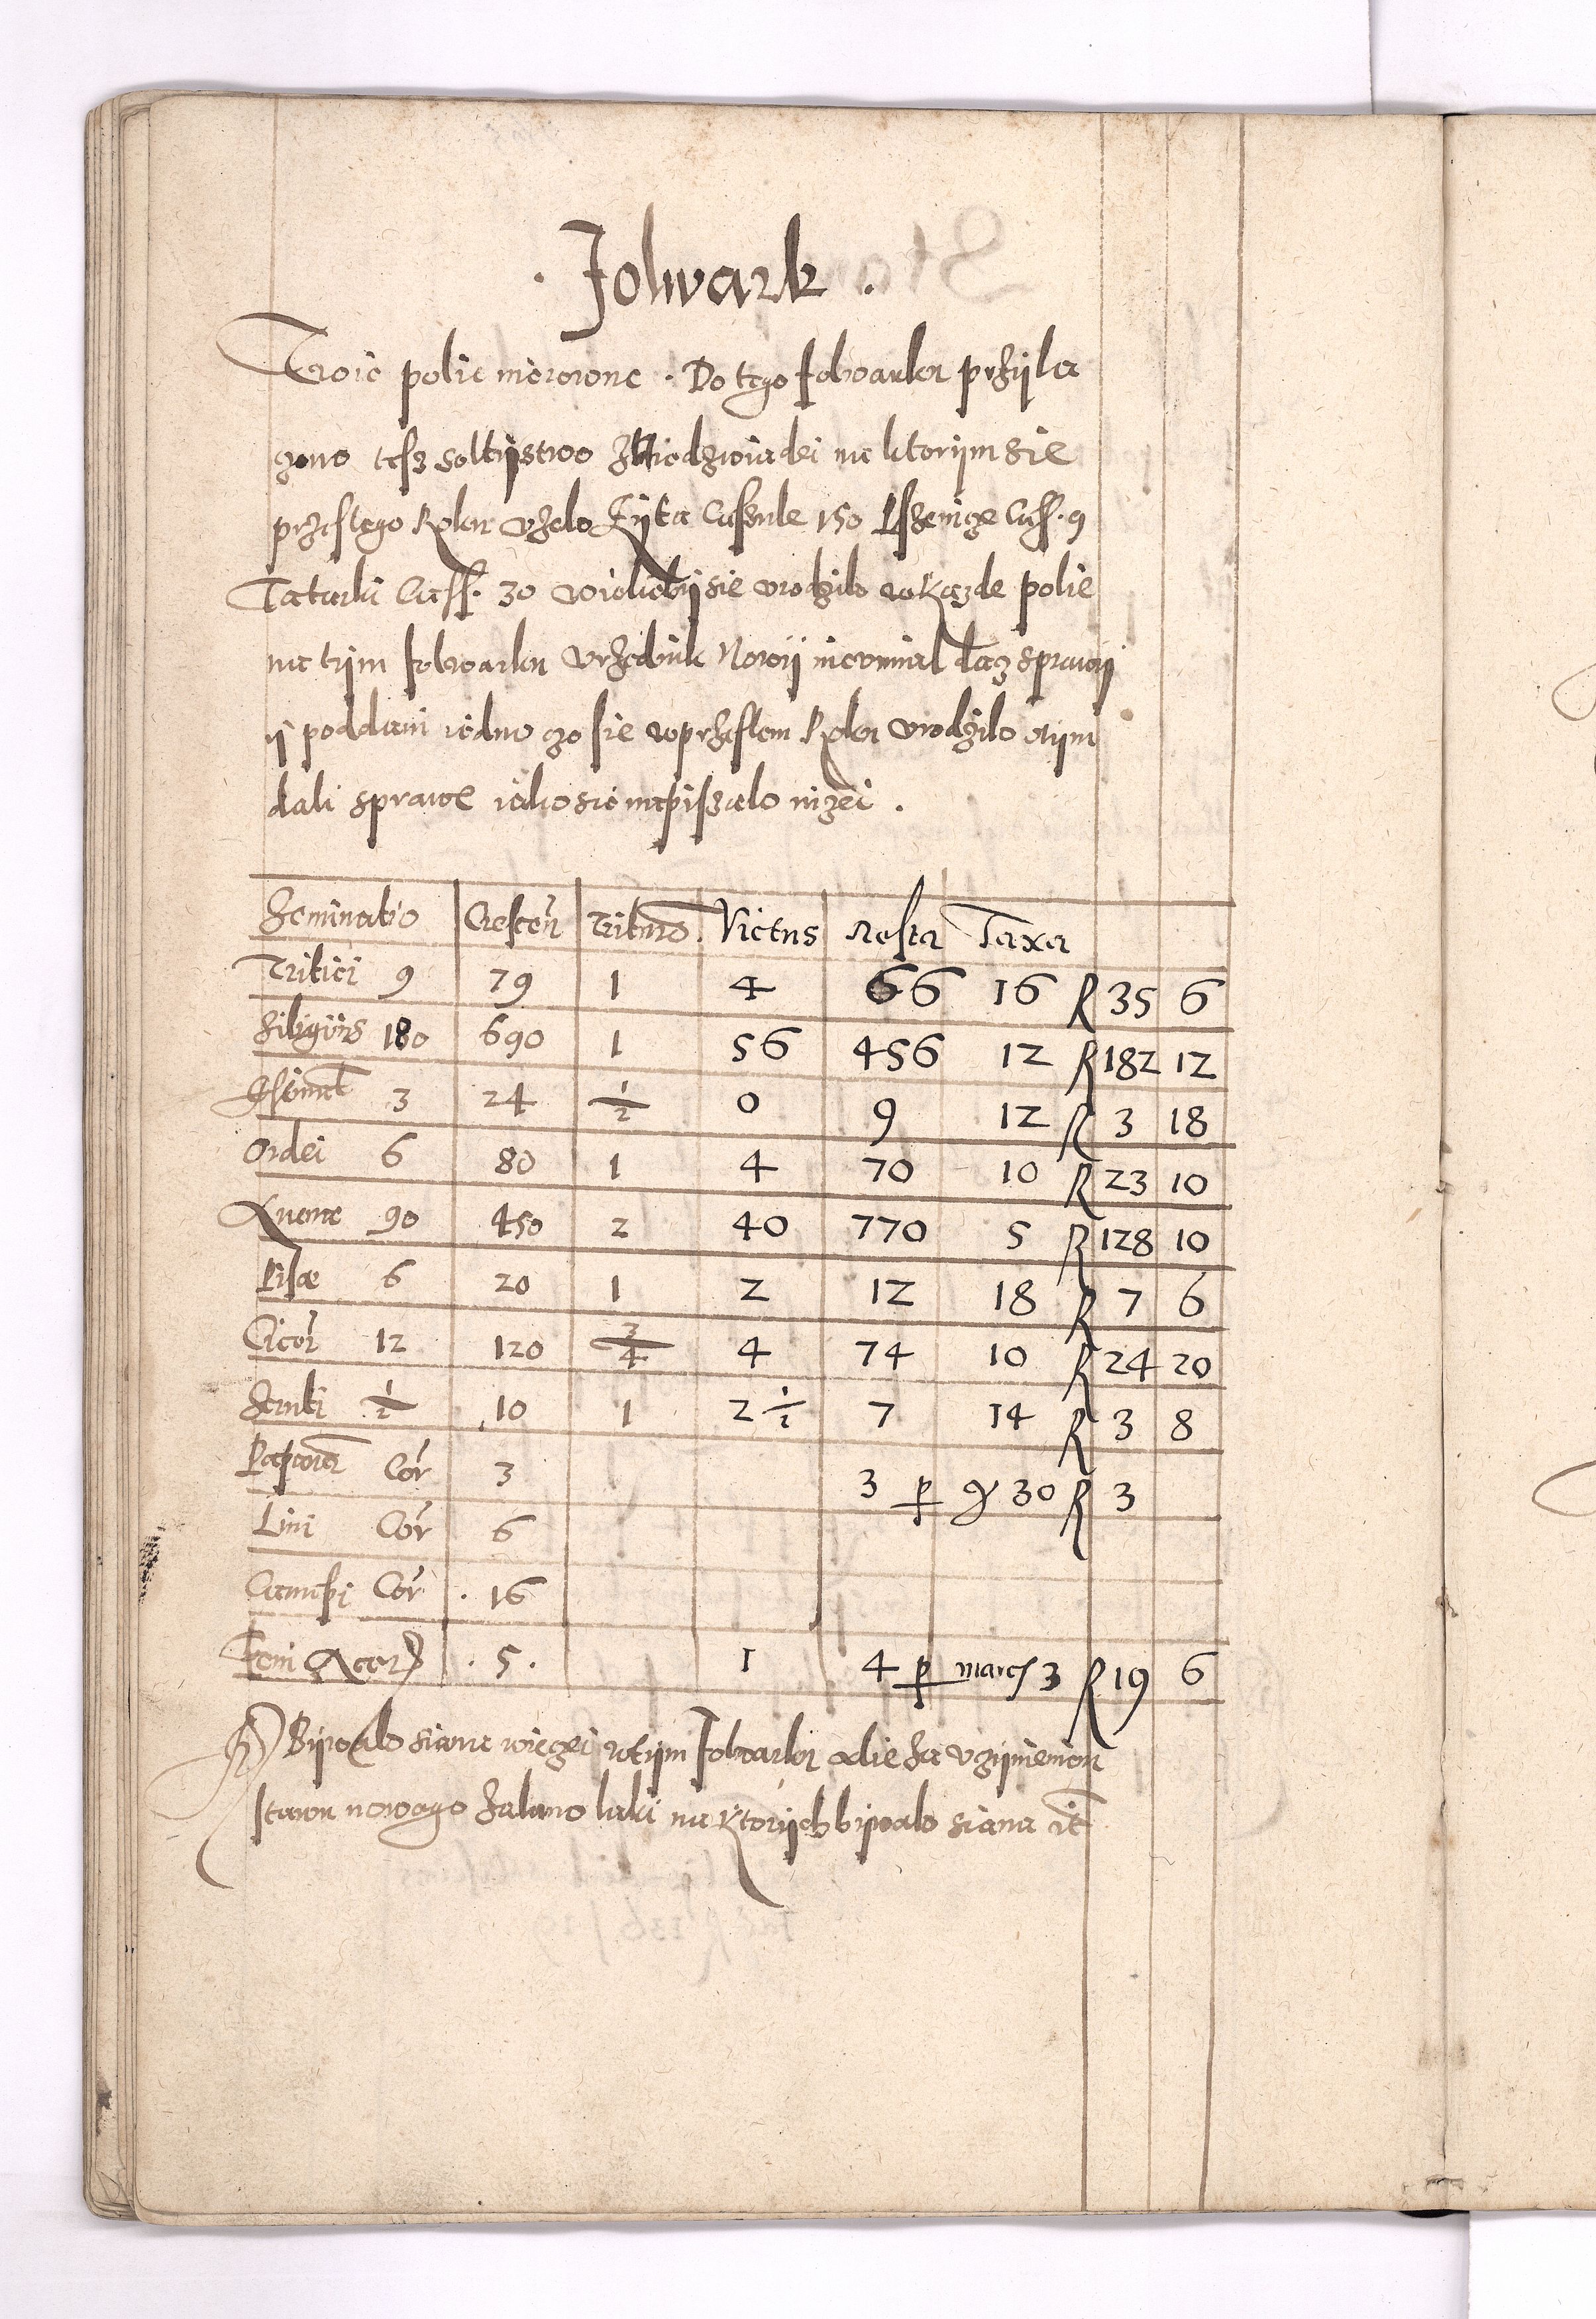 . Folwark .
Troie polie nierowne . Do tego folwarku przijla
czono tesz soltijstwo Zniedzwiadei na ktorijm sie
przeslego Roku vzelo Zijta Cassule 150 Psseniçe Cass. 9
Tatarki Cass. 30 wieliebij sie vrodzilo na kazde polie
na tijm folwarku vrzednik Nowij nievmial dacz sprawij
ij poddani iedno czo sie wprzeslem Roku vrodzilo otijm
dali sprawe iako sie napiszalo nizei .
Seminatio Crescen Triturae Victus Resta Taxa
Tritici 9 79 1 4 66 16 R 35 6
Siliginis 180 690 1 56 456 12 R 182 12
3 24 1/2 0 9 12 R 3 18
Ordei 6 80 1 4 70 10 R 23 10
Avene 90 450 2 40 770 5 R 128 10
Pisae 6 20 1 2 12 18 R 7 6
Cicer 12 120 3/4 4 74 10 R 24 20
1/2 10 1 2 1/2 7 14 R 3 8
Papaver Cor 3 3 p gr 30 R 3
Lini Cor 6
Canapi Cor . 16
Feni Acer . 5 . 1 4 p marc 3 R 19 6
Bijwalo siana wieczei wtijm folwarku alie za vczijnieniem
stawu nowego zalano laki na ktorijch bijwalo siana